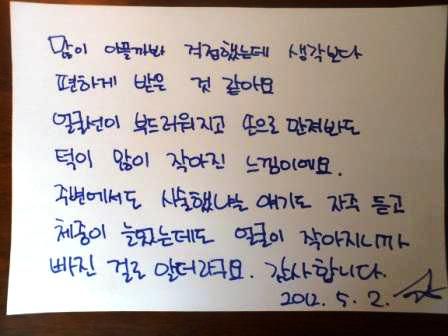 많이 아플까봐 걱정했는데 생각보다
편하게 받은 것 같아요
얼굴선이 부드러워지고 손으로 만져봐도
턱이 많이 작아진 느낌이에요.
주변에서도 시술했냐는 얘기도 자주 듣고
체중이 늘었는데도 얼굴이 작아지니까
빠진 걸로 알더라구요. 감사합니다.
2012. 5. 2.